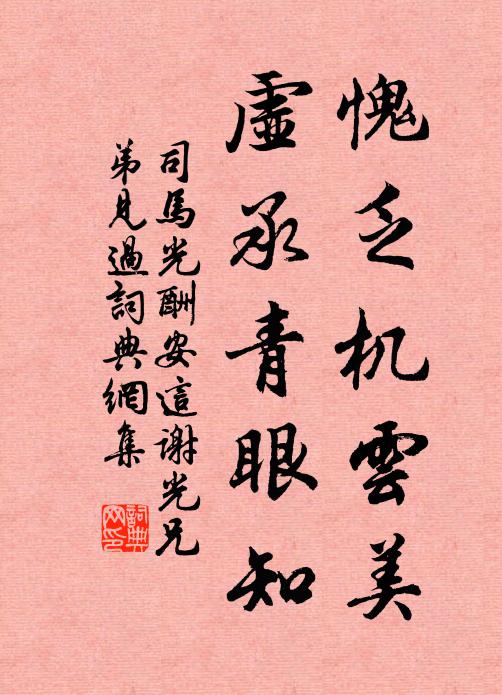 愧乏机雲美
虛承青眼知
司馬光酬安這謝光兄
弟見過詞典網集
詞典
网印